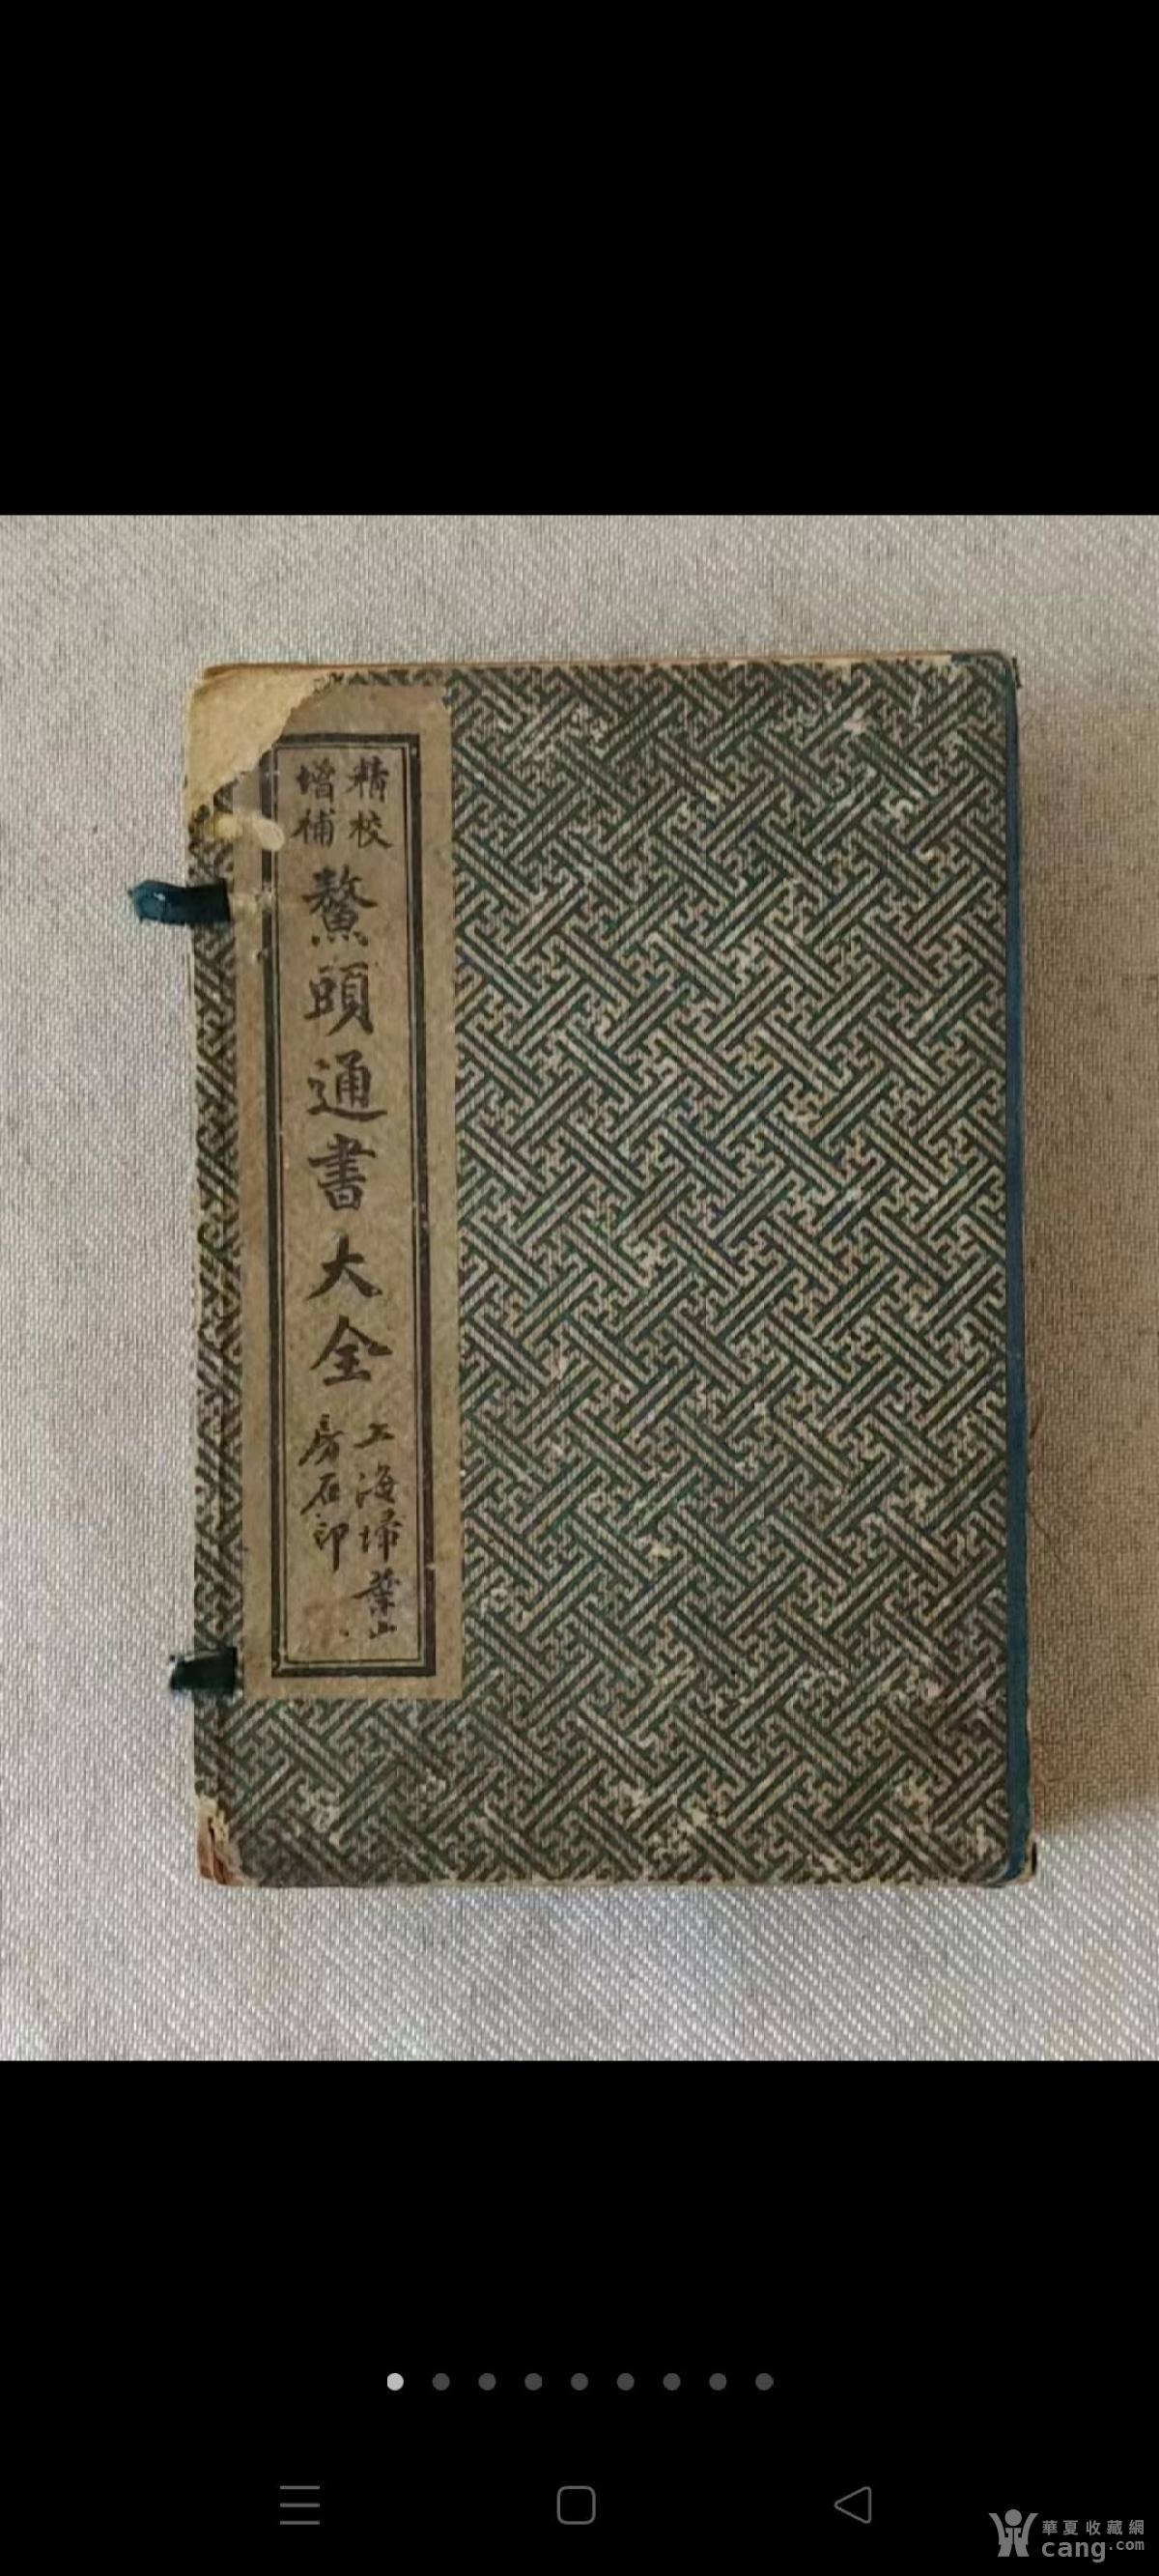 精校
增補
鰲頭通書大全
上海掃葉山
房石印
華夏收藏網
cang.com